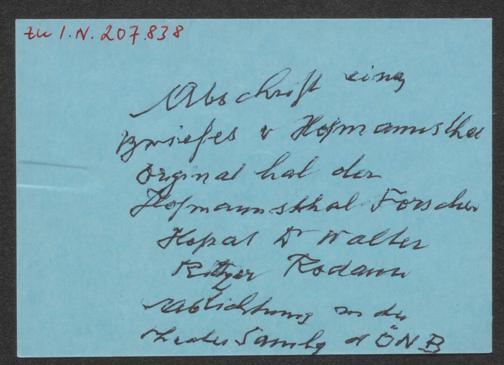 zu I.N. 207.838
Abschrift eines
Briefes v Hofmannsthal
Orginal hat der
Hofmannsthal Forscher
Hofrat Dr Walter
Ritzer Rodaun
Ablichtung in der
Theater Samlg d ÖNB